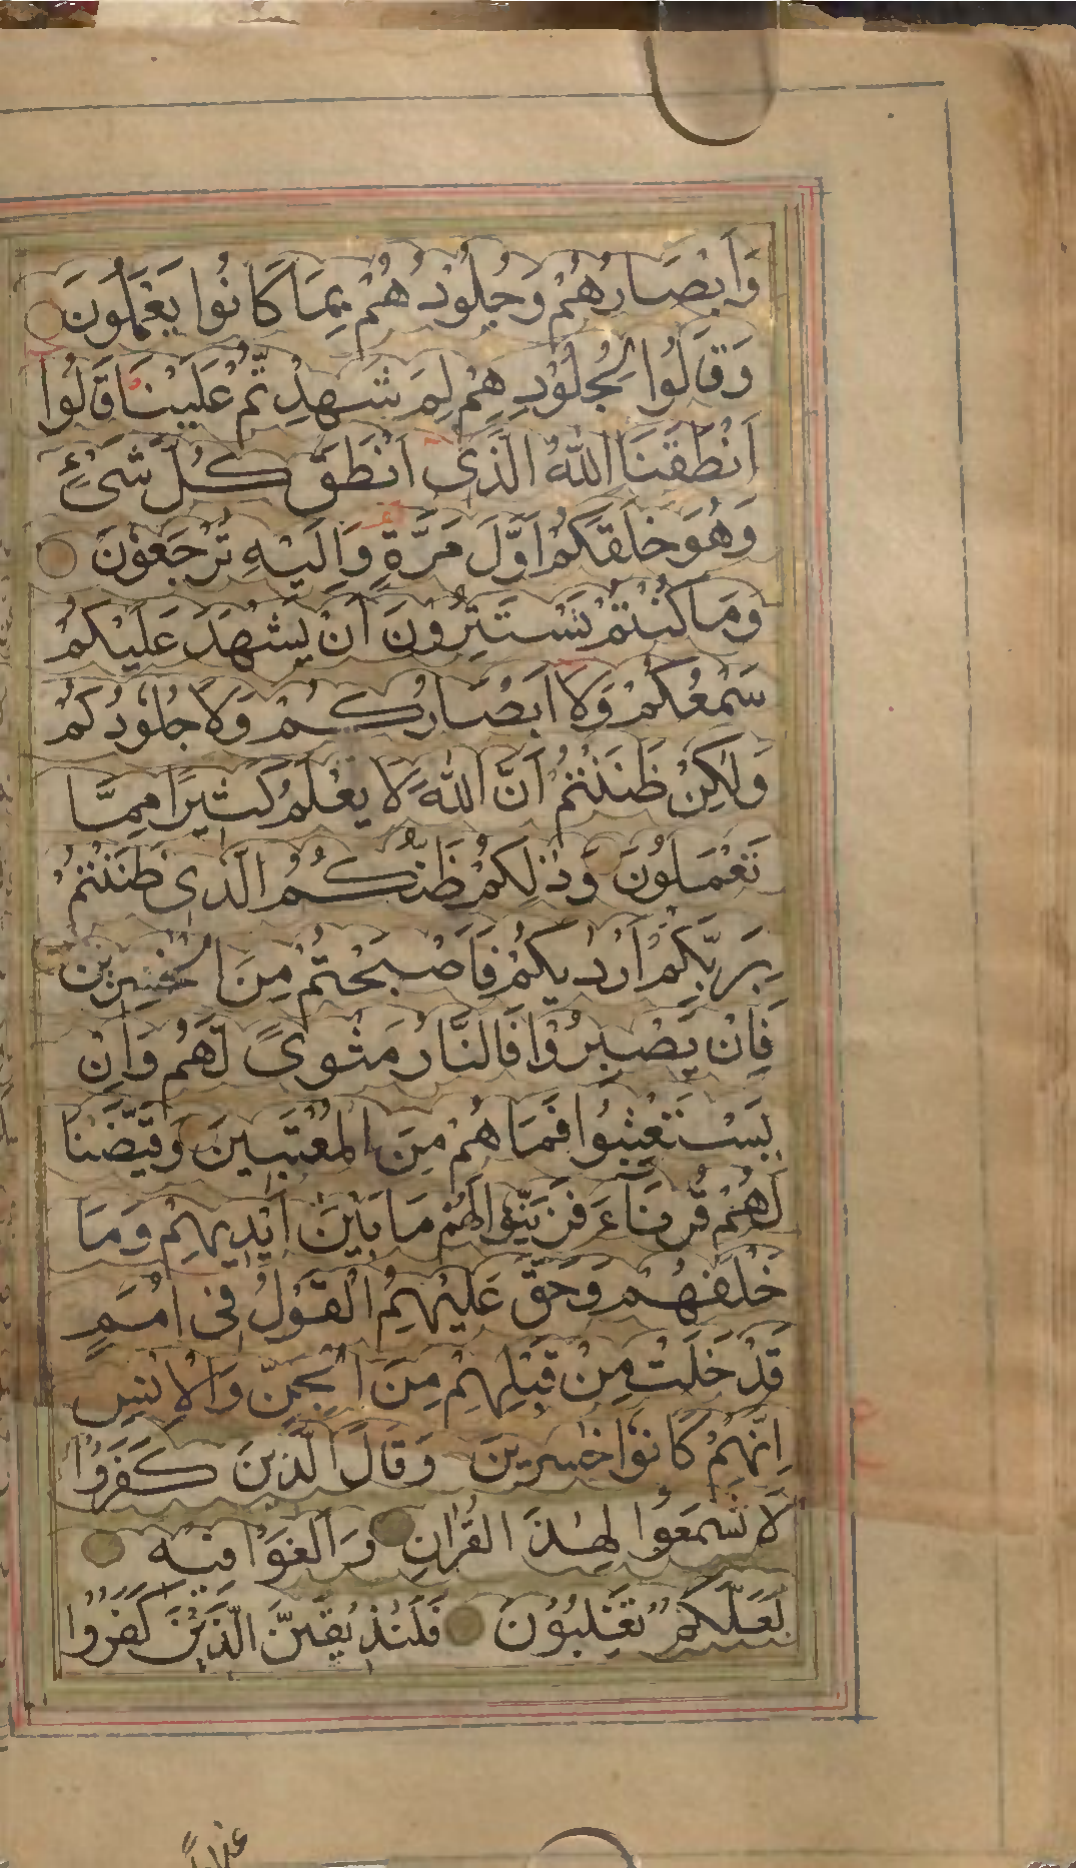 وَاَبْصَارُهُمْ وَجُلُودُهُمْ بِمَا كَانُوا يَعْمَلُونَ
وَقَالُوا لِجُلُودِهِمْ لِمَ شَهِدْتُّمْ عَلَيْنَا قَالُوا
اَنْطَقَنَا اللّٰهُ الَّذِى اَنْطَقَ كُلَّ شَىْءٍ
وَهُوَ خَلَقَكُمْ اَوَّلَ مَرَّةٍ وَاِلَيْهِ تُرْجَعُوْنَ
وَمَا كُنْتُمْ تَسْتَتِرُونَ اَنْ يَشْهَدَ عَلَيْكُمْ
سَمْعُكُمْ وَلَا اَبْصَارُكُمْ وَلَا جُلُوْدُكُمْ
وَلٰكِنْ ظَنَنْتُمْ اَنَّ اللّٰهَ لَا يَعْلَمُ كَثِيْرًا مِمَّا
تَعْمَلُوْنَ وَذٰلِكُمْ ظَنُّكُمُ الَّذِى ظَنَنْتُمْ
بِرَبِّكُمْ اَرْدٰىكُمْ فَاَصْبَحْتُمْ مِنَ الْخٰسِرِيْنَ
فَاِنْ يَصْبِرُوْا فَالنَّارُ مَثْوًى لَهُمْ وَاِنْ
يَسْتَعْتِبُوْا فَمَا هُمْ مِنَ الْمُعْتَبِيْنَ وَقَيَّضْنَا
لَهُمْ قُرَنَآءَ فَزَيَّنُوْا لَهُمْ مَا بَيْنَ اَيْدِيْهِمْ وَمَا
خَلْفَهُمْ وَحَقَّ عَلَيْهِمُ الْقَوْلُ فِى اُمَمٍ
قَدْ خَلَتْ مِنْ قَبْلِهِمْ مِنَ الْجِنِّ وَالْاِنْسِ
اِنَّهُمْ كَانُوْا خٰسِرِيْنَ وَقَالَ الَّذِيْنَ كَفَرُوْا
لَا تَسْمَعُوْا لِهٰذَا الْقُرْاٰنِ وَالْغَوْا فِيْهِ
لَعَلَّكُمْ تَغْلِبُوْنَ فَلَنُذِيْقَنَّ الَّذِيْنَ كَفَرُوْا
عذابا